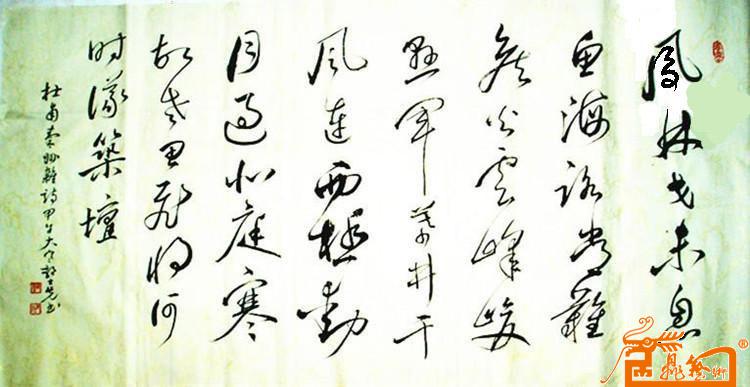 鳳林戈未息
魚海路常難
候火雲峰峻
懸軍幕井干
風連西極動
月過北庭寒
故老思飛將何
時議築壇
杜甫秦州雜詩甲午書